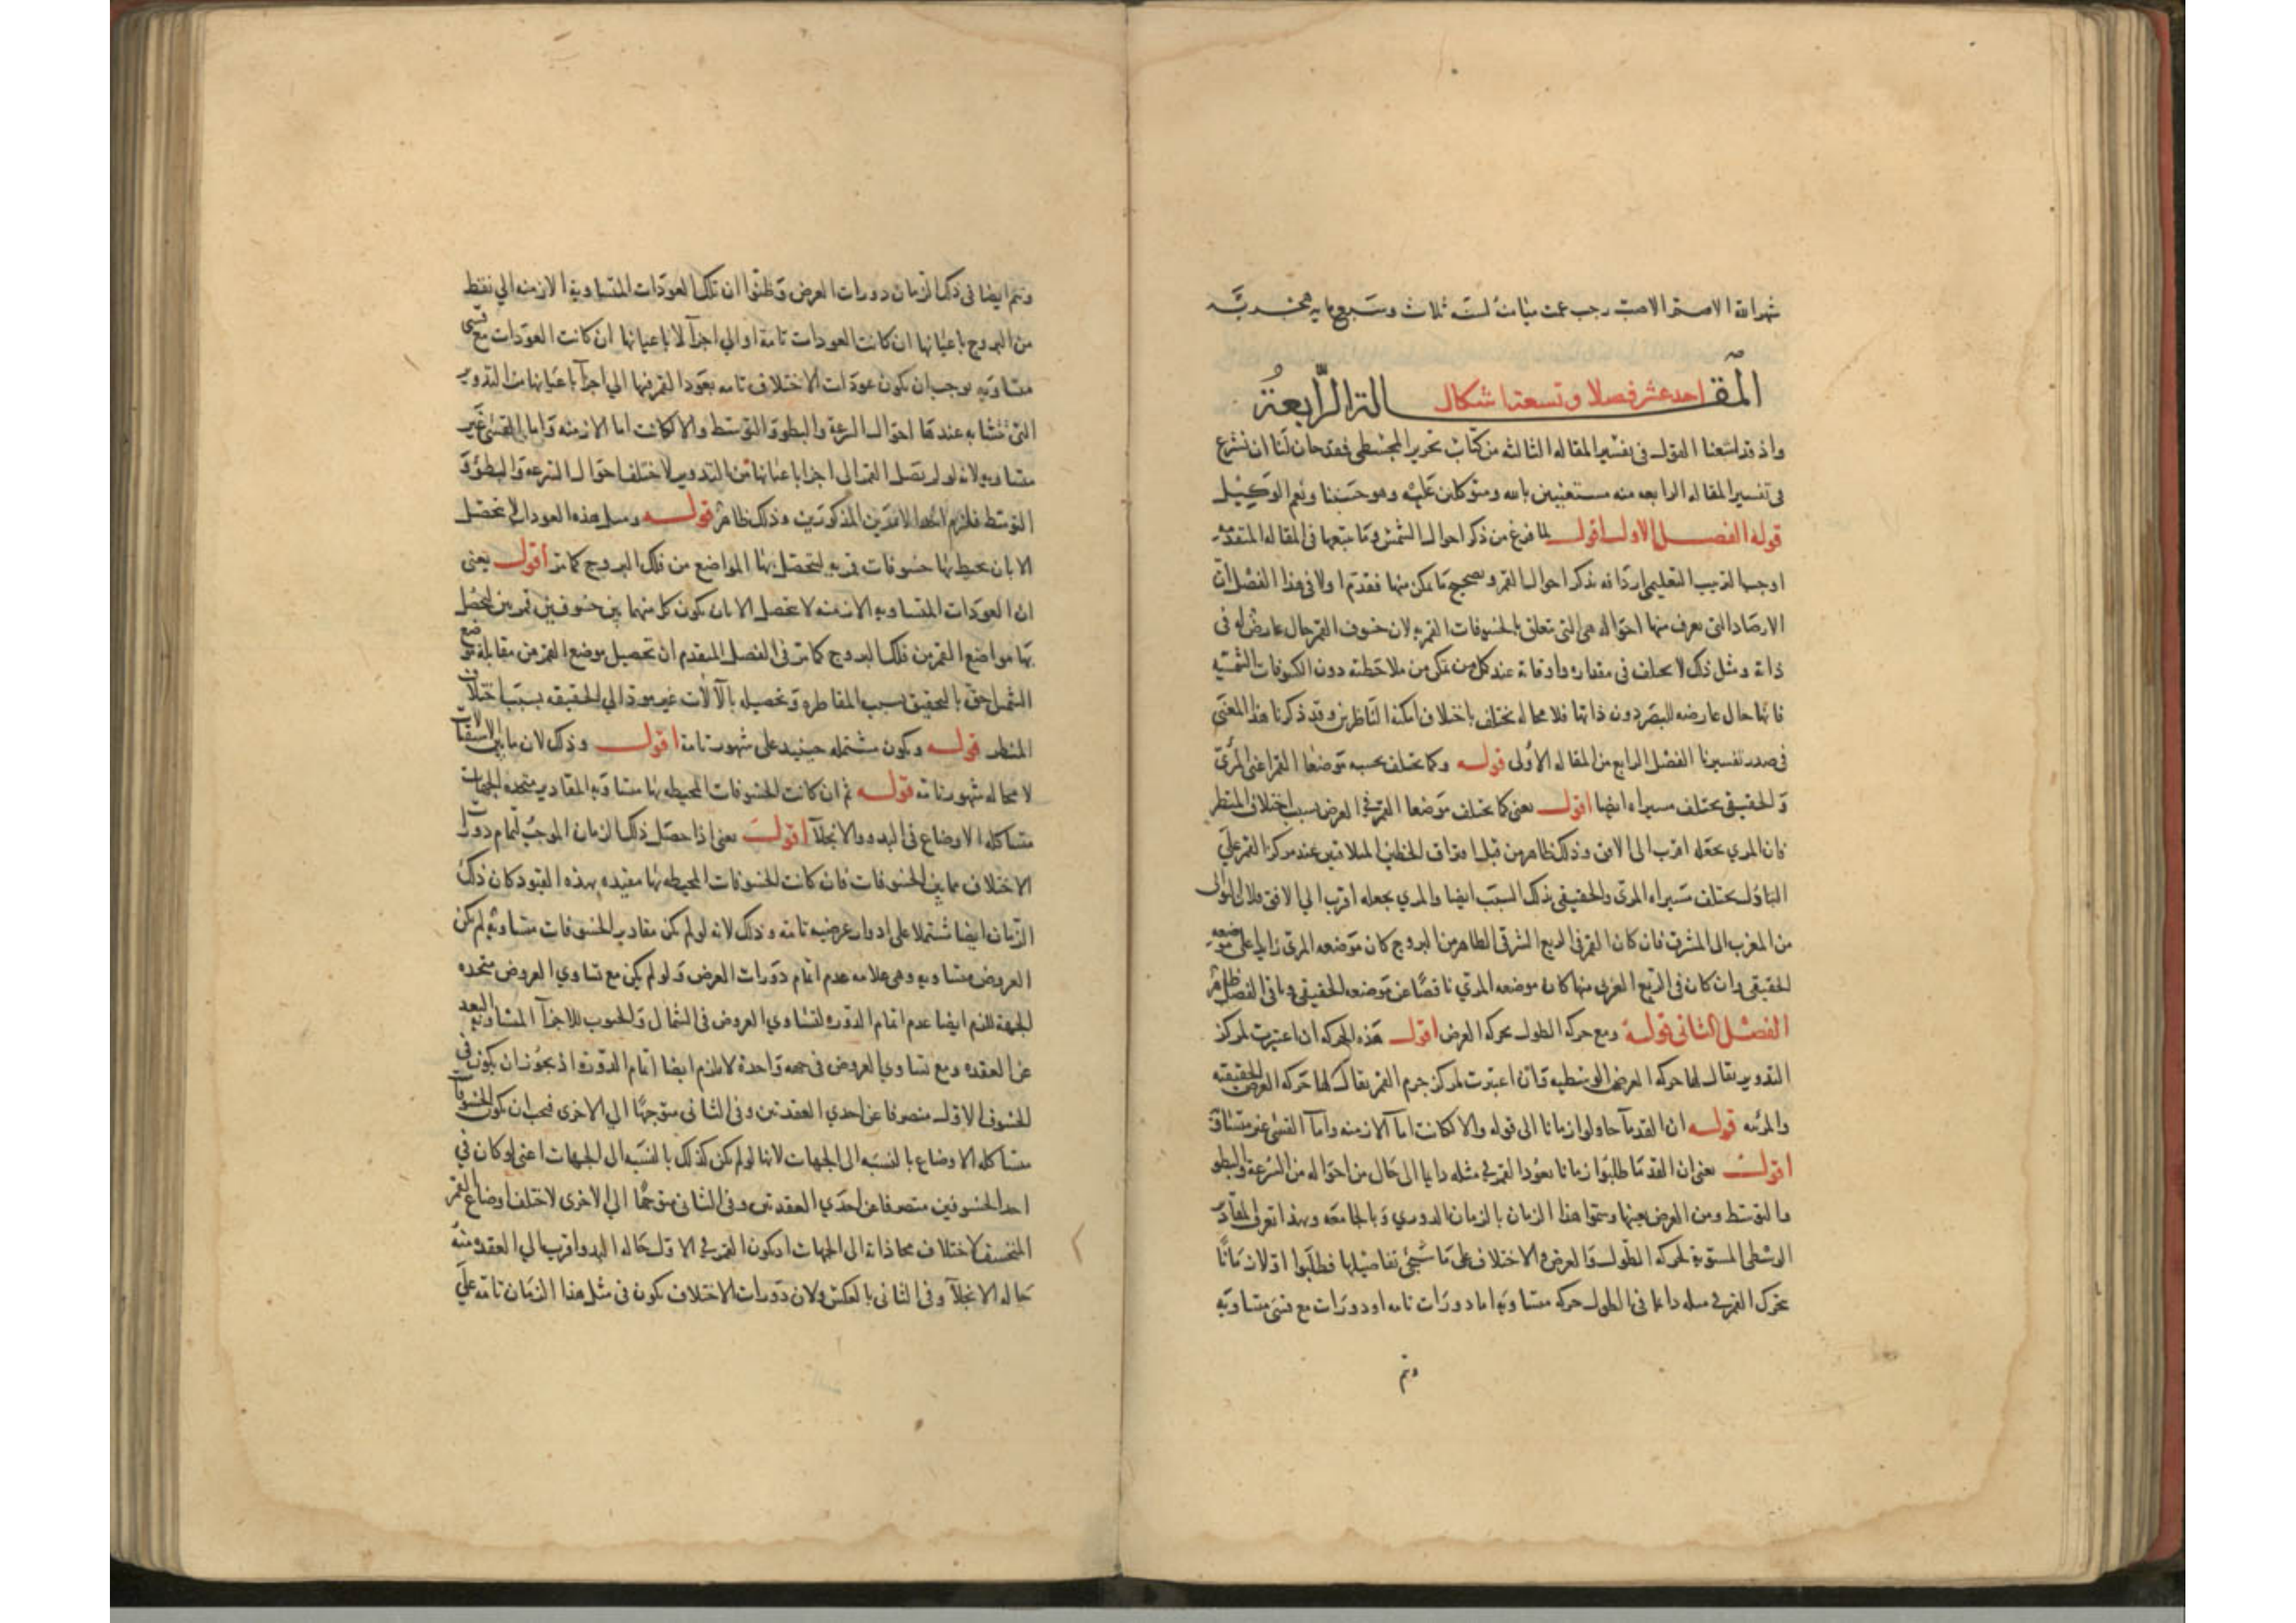 شهر الله الاصم الاصب رجب عمت ميامنه لسنة ثلاث وسبع مايه هجريه
المقالة الرابعة
احد عشر فصلا وتسعة اشكال
واذ قد اشبعنا القول فى تفسير المقاله الثالثه من كتاب تحرير المجسطى فقد حان لنا ان نشرع
فى تفسير المقاله الرابعه منه مستعينين بالله ومتوكلين عليه وهو حسبنا ونعم الوكيل
قوله الفصل الاول اقول لما فرغ من ذكر احوال الشمش وما يتبعها فى المقاله المتقدمه
اوجب الترتيب التعليمى اردافه بذكر احوال القمر وتصحيح ما يمكن منها فقدم اولا فى هذا الفصل ان
الارصاد التى يعرف منها احواله هى التى تتعلق بالخسوفات القمريه لان خسوف القمر حال عارض له فى
ذاته ومثل ذلك لا يختلف فى مقداره واوقاته عند كل من يمكن من ملاحظته دون الكسوفات الشمسيه
فانها حال عارضه للبصر دون ذاتها فلا محاله تختلف باختلاف امكنة الناظرين وقد ذكرنا هذا المعنى
فى صدر تفسيرنا الفصل الرابع من المقاله الاولى قوله وكما يختلف بحسبه موضعا القمر اعنى المرئى
والحقيقى يختلف مسيراه ايضا اقول يعنى كما يختلف موضعا القمر فى العرض بسبب اختلاف المنظر
فان المرى يجعله اقرب الى الافق وذلك ظاهر من قبل افتراق الخطين المتلاقيين عند مركز القمر على
التبادل يختلف مسيراه المرى والحقيقى بذلك السبب ايضا والمرى يجعله اقرب الى الافق
من المغرب الى المشرق فان كان القمر فى الربع الشرقى الظاهر من البروج كان موضعه المرى زايدا على موضعه
الحقيقى وان كان فى الربع الغربى منها كان موضعه المرئي ناقصا عن موضعه الحقيقى وباقى الفصل ظاهر
الفصل الثانى قوله ومع حركه الطول بحركه العرض اقول هذه الحركه ان اعتبرت لمركز
التدوير يقال لها حركه العرض الوسطيه وان اعتبرت لمركز جرم القمر يقال لها حركه العرض الحقيقيه
والمرئيه قوله ان القدماء حاولوا زمانا الى قوله والا لكانت اما الازمنه واما القسى غير متساوية
اقول يعنى ان القدما طلبوا زمانا يعود القمر فى مثله دايما الى حال من احواله من السرعة والبطو
والتوسط ومن العرض بعينها وسموا هذا الزمان بالزمان الدورى وبالجامعه وبهذا تعرف المقادير
الوسطى المستويه لحركه الطول والعرض والاختلاف على ما سيجئ تفاصيلها فطلبوا اولا زمانا
يتحرك القمر فى مثله دائما فى الطول حركه متساويه اما دورات تامه او دورات مع قسى متساويه
ويتم
ويتم ايضا فى ذلك الزمان دورات العرض وظنوا ان تلك العودات المتساوية الازمنه الى نقط
من البروج باعيانها ان كانت العودات تامة او الى اجزآ لا باعيانها ان كانت العودات مع قسى
متساويه يوجب ان يكون عودات الاختلاف تامه يعود القمر فيها الى اجزآ باعيانها من التدوير
التى تتشابه عندها احوال السرعة والبطو والتوسط والا لكانت اما الازمنه واما القسى غير
متساويه لانه لو لم يصل القمر الى اجزا باعيانها من التدوير لاختلف احوال السرعه والبطؤ و
التوسط فلزم احد الامرين المذكورين وذلك ظاهر قوله ومثل هذه العودات لا تحصل
الا بان يحيط بها خسوفات قمريه لتحصل بها المواضع من فلك البروج كما مر اقول يعنى
ان العودات المتساويه الازمنه لا تحصل الا بان يكون كل منهما بين خسوفين قمريين لتحصل
بها مواضع القمر من فلك البروج كما مر فى الفصل المتقدم ان تحصيل موضع القمر من مقابلة موضع
الشمس احق بالتحقيق بسبب المقاطره وتحصيله بالآلات غير مود الى الحقيقه بسبب اختلاف
المنظر قوله ويكون مشتمله حينيد على شهور تامة اقول وذلك لان ما بين الاستقبالات
لا محاله شهور تامه قوله ثم ان كانت الخسوفات المحيطه بها متساويه المقادير متحده الجهات
متشاكله الاوضاع فى البدو والانجلآ اقول يعنى اذا حصل ذلك الزمان الموجب لتمام دورات
الاختلاف مما بين الخسوفات فان كانت الخسوفات المحيطه بها مقيده بهذه القيود كان ذلك
الزمان ايضا مشتملا على ادوار عرضيه تامه وذلك لانه لو لم يكن مقادير الخسوفات متساويه لم يكن
العروض متساويه وهى علامه عدم اتمام دورات العرض ولو لم يكن مع تساوي العروض متحده
الجهة للزم ايضا عدم اتمام الدوره لتساوي العروض فى الشمال والجنوب للاجزآ المتساويه البعد
عن العقده ومع تساوي العروض فى جهه واحدة لا يلزم ايضا اتمام الدورة اذ يجوز ان يكون فى
الخسوف الاول منصرفا عن احدي العقدتين وفى الثانى متوجها الى الاخرى فيجب ان يكون الخسوفات
متشاكله الاوضاع بالنسبه الى الجهات لانها لو لم يكن كذلك بالنسبه الى الجهات اعنى لو كان في
احد الخسوفين منصرفا عن احدي العقدتين وفى الثانى متوجها الى الاخرى لاختلف اوضاع القمر
المنخسف لاختلاف محاذاته الى الجهات اذ يكون القمر فى الاول حاله البدو اقرب الى العقده منه
حاله الانجلآ وفى الثانى بالعكس ولان دورات الاختلاف تكون فى مثل هذا الزمان تامه على